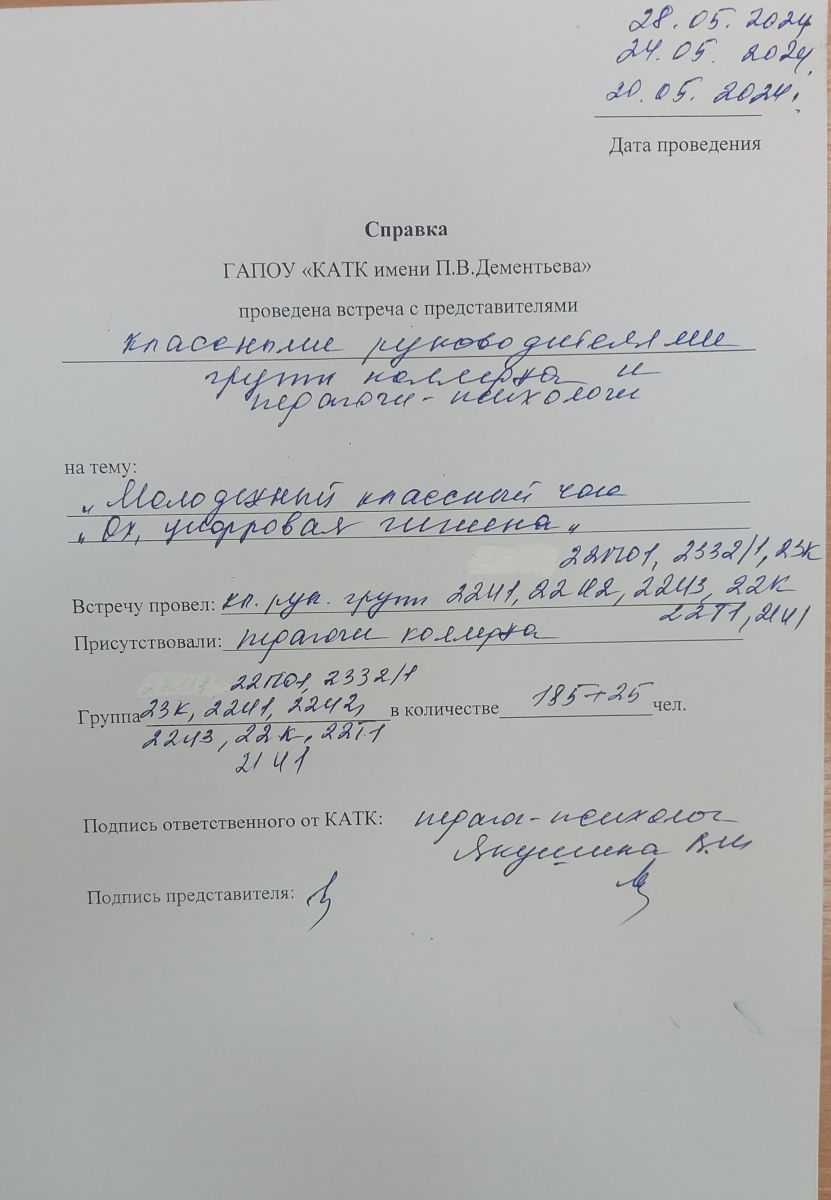 28.05.2024
24.05.2024
20.05.2024.
Дата проведения
Справка
ГАПОУ «КАТК имени П.В.Дементьева»
проведена встреча с представителями
классными руководителями
групп колледжа и
педагоги-психологи
на тему:
„Молодежный классный час
„Ох, цифровая гигиена„
22ПО1, 2332/1, 23К
Встречу провел: кл. рук. групп 22И1, 22И2, 22И3, 22К
22Т1, 21И1
Присутствовали: педагоги колледжа
22ПО1, 2332/1
Группа 23К, 22И1, 22И2, в количестве 185+25 чел.
22И3, 22К, 22Т1
21И1
Подпись ответственного от КАТК: педагог-психолог
Якушина В.М
Подпись представителя: